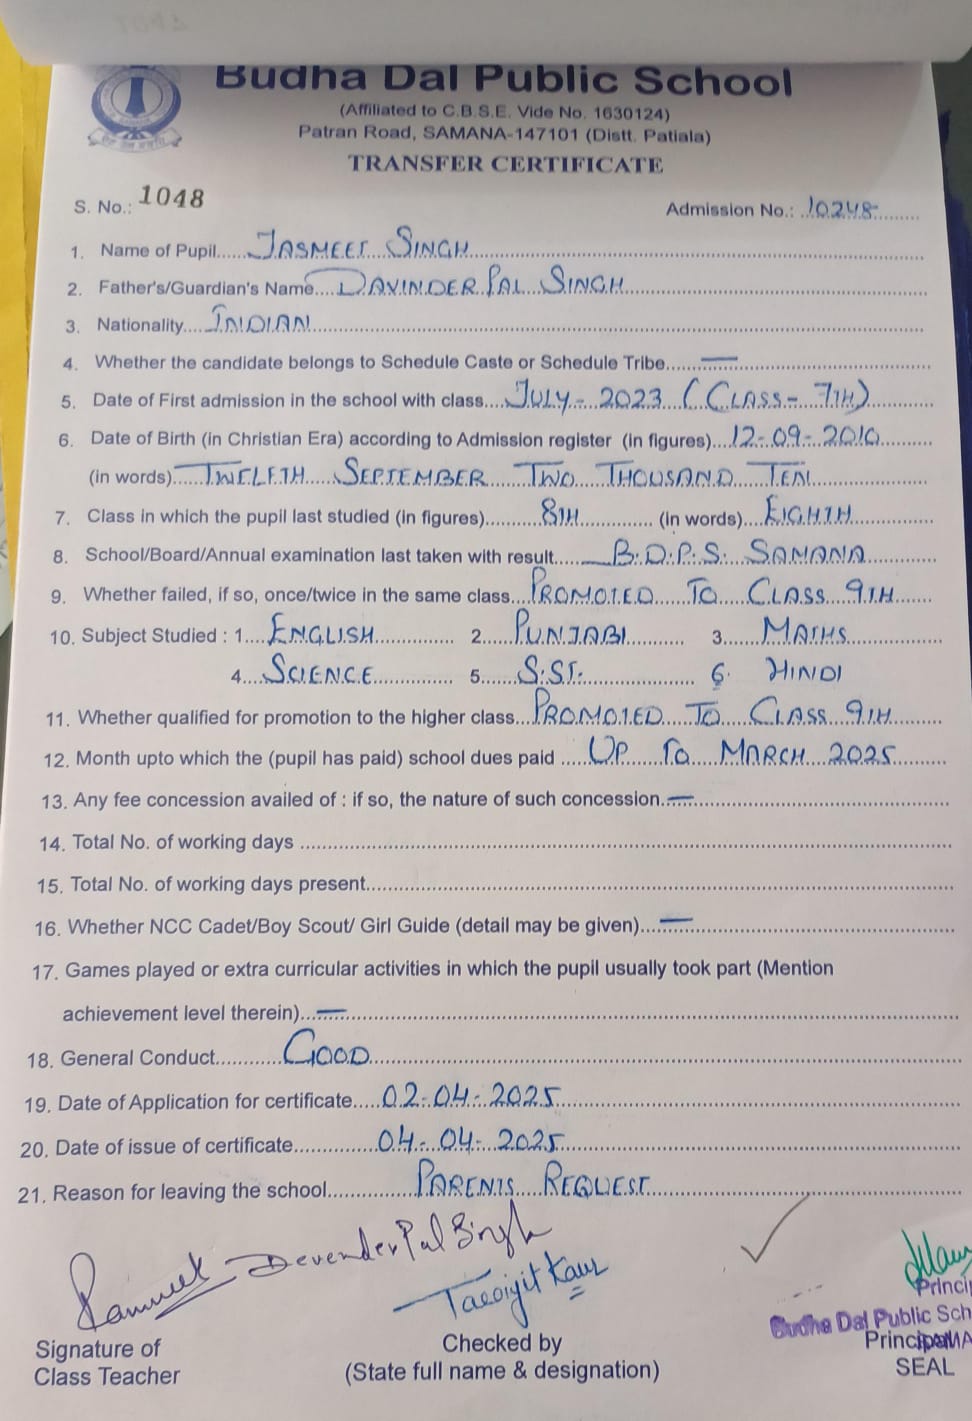 Budha Dal Public School
(Affiliated to C.B.S.E. Vide No. 1630124)
Patran Road, SAMANA-147101 (Distt. Patiala)
TRANSFER CERTIFICATE
S. No.: 1048 Admission No.: 10248
1. Name of Pupil JASMEET SINGH
2. Father's/Guardian's Name DAVINDER PAL SINGH
3. Nationality INDIAN
4. Whether the candidate belongs to Schedule Caste or Schedule Tribe —
5. Date of First admission in the school with class JULY - 2023 (CLASS - 7TH)
6. Date of Birth (in Christian Era) according to Admission register (in figures) 12-09-2010
(in words) TWELFTH SEPTEMBER TWO THOUSAND TEN
7. Class in which the pupil last studied (in figures) 8TH (in words) EIGHTH
8. School/Board/Annual examination last taken with result B.D.P.S. SAMANA
9. Whether failed, if so, once/twice in the same class PROMOTED TO CLASS 9TH
10. Subject Studied : 1 ENGLISH 2 PUNJABI 3 MATHS
4 SCIENCE 5 S.ST. 6. HINDI
11. Whether qualified for promotion to the higher class PROMOTED TO CLASS 9TH
12. Month upto which the (pupil has paid) school dues paid UP TO MARCH 2025
13. Any fee concession availed of : if so, the nature of such concession. —
14. Total No. of working days
15. Total No. of working days present
16. Whether NCC Cadet/Boy Scout/ Girl Guide (detail may be given) —
17. Games played or extra curricular activities in which the pupil usually took part (Mention
achievement level therein) —
18. General Conduct GOOD
19. Date of Application for certificate 02-04-2025
20. Date of issue of certificate 04-04-2025
21. Reason for leaving the school PARENTS REQUEST
Devender Pal Singh
Kaur
Princi
Budha Dal Public Sch
Signature of Checked by Principal
Class Teacher (State full name & designation) SEAL